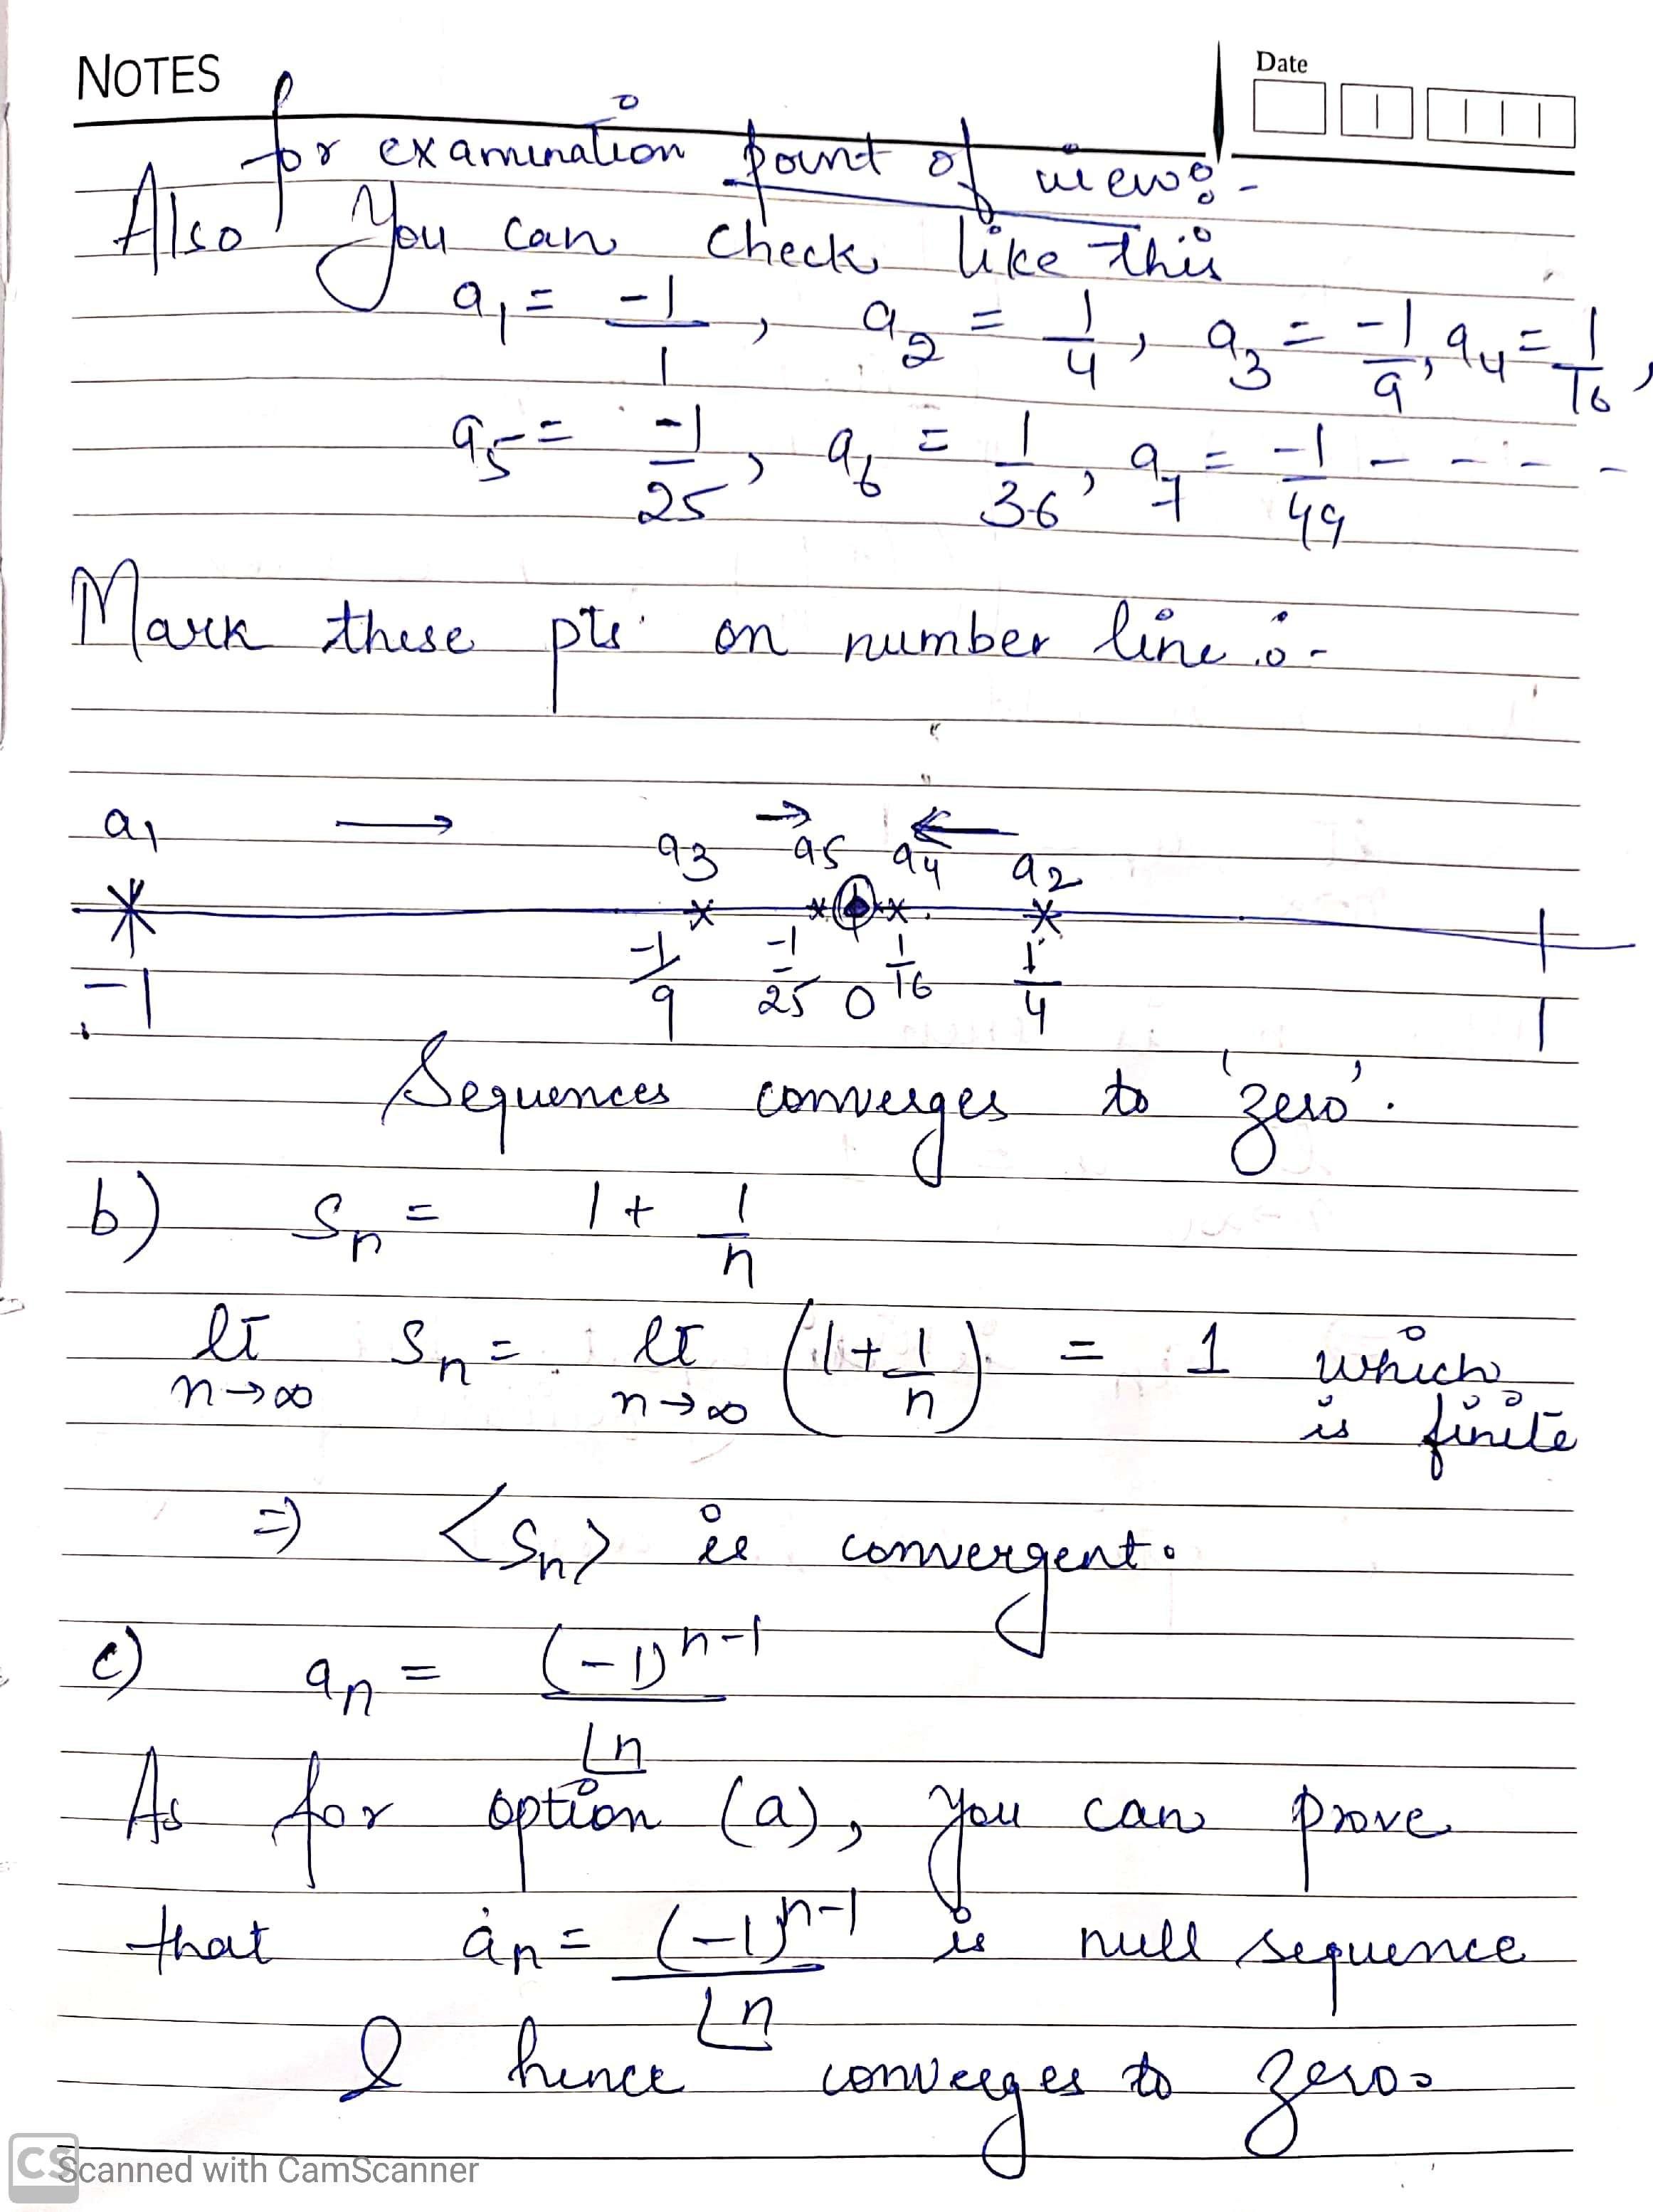 NOTES
Date
for examination point of view :-
Also You can check like this
a₁ = -1/1, a₂ = 1/4, a₃ = -1/9, a₄ = 1/16,
a₅ = -1/25, a₆ = 1/36, a₇ = -1/49 - - - -
Mark these pts. on number line :-
a₁ → a₃ → a₅ a₄ ← a₂
-1 -1/9 -1/25 0 1/16 1/4 1
Sequences converges to 'zero'.
b) Sn = 1 + 1/n
lt n→∞ Sn = lt n→∞ (1 + 1/n) = 1 which
is finite
⇒ <Sn> is convergent.
c) an = (-1)ⁿ⁻¹/⌊n
As for option (a), you can prove
that an = (-1)ⁿ⁻¹/⌊n is null sequence
& hence converges to zero.
CS Scanned with CamScanner